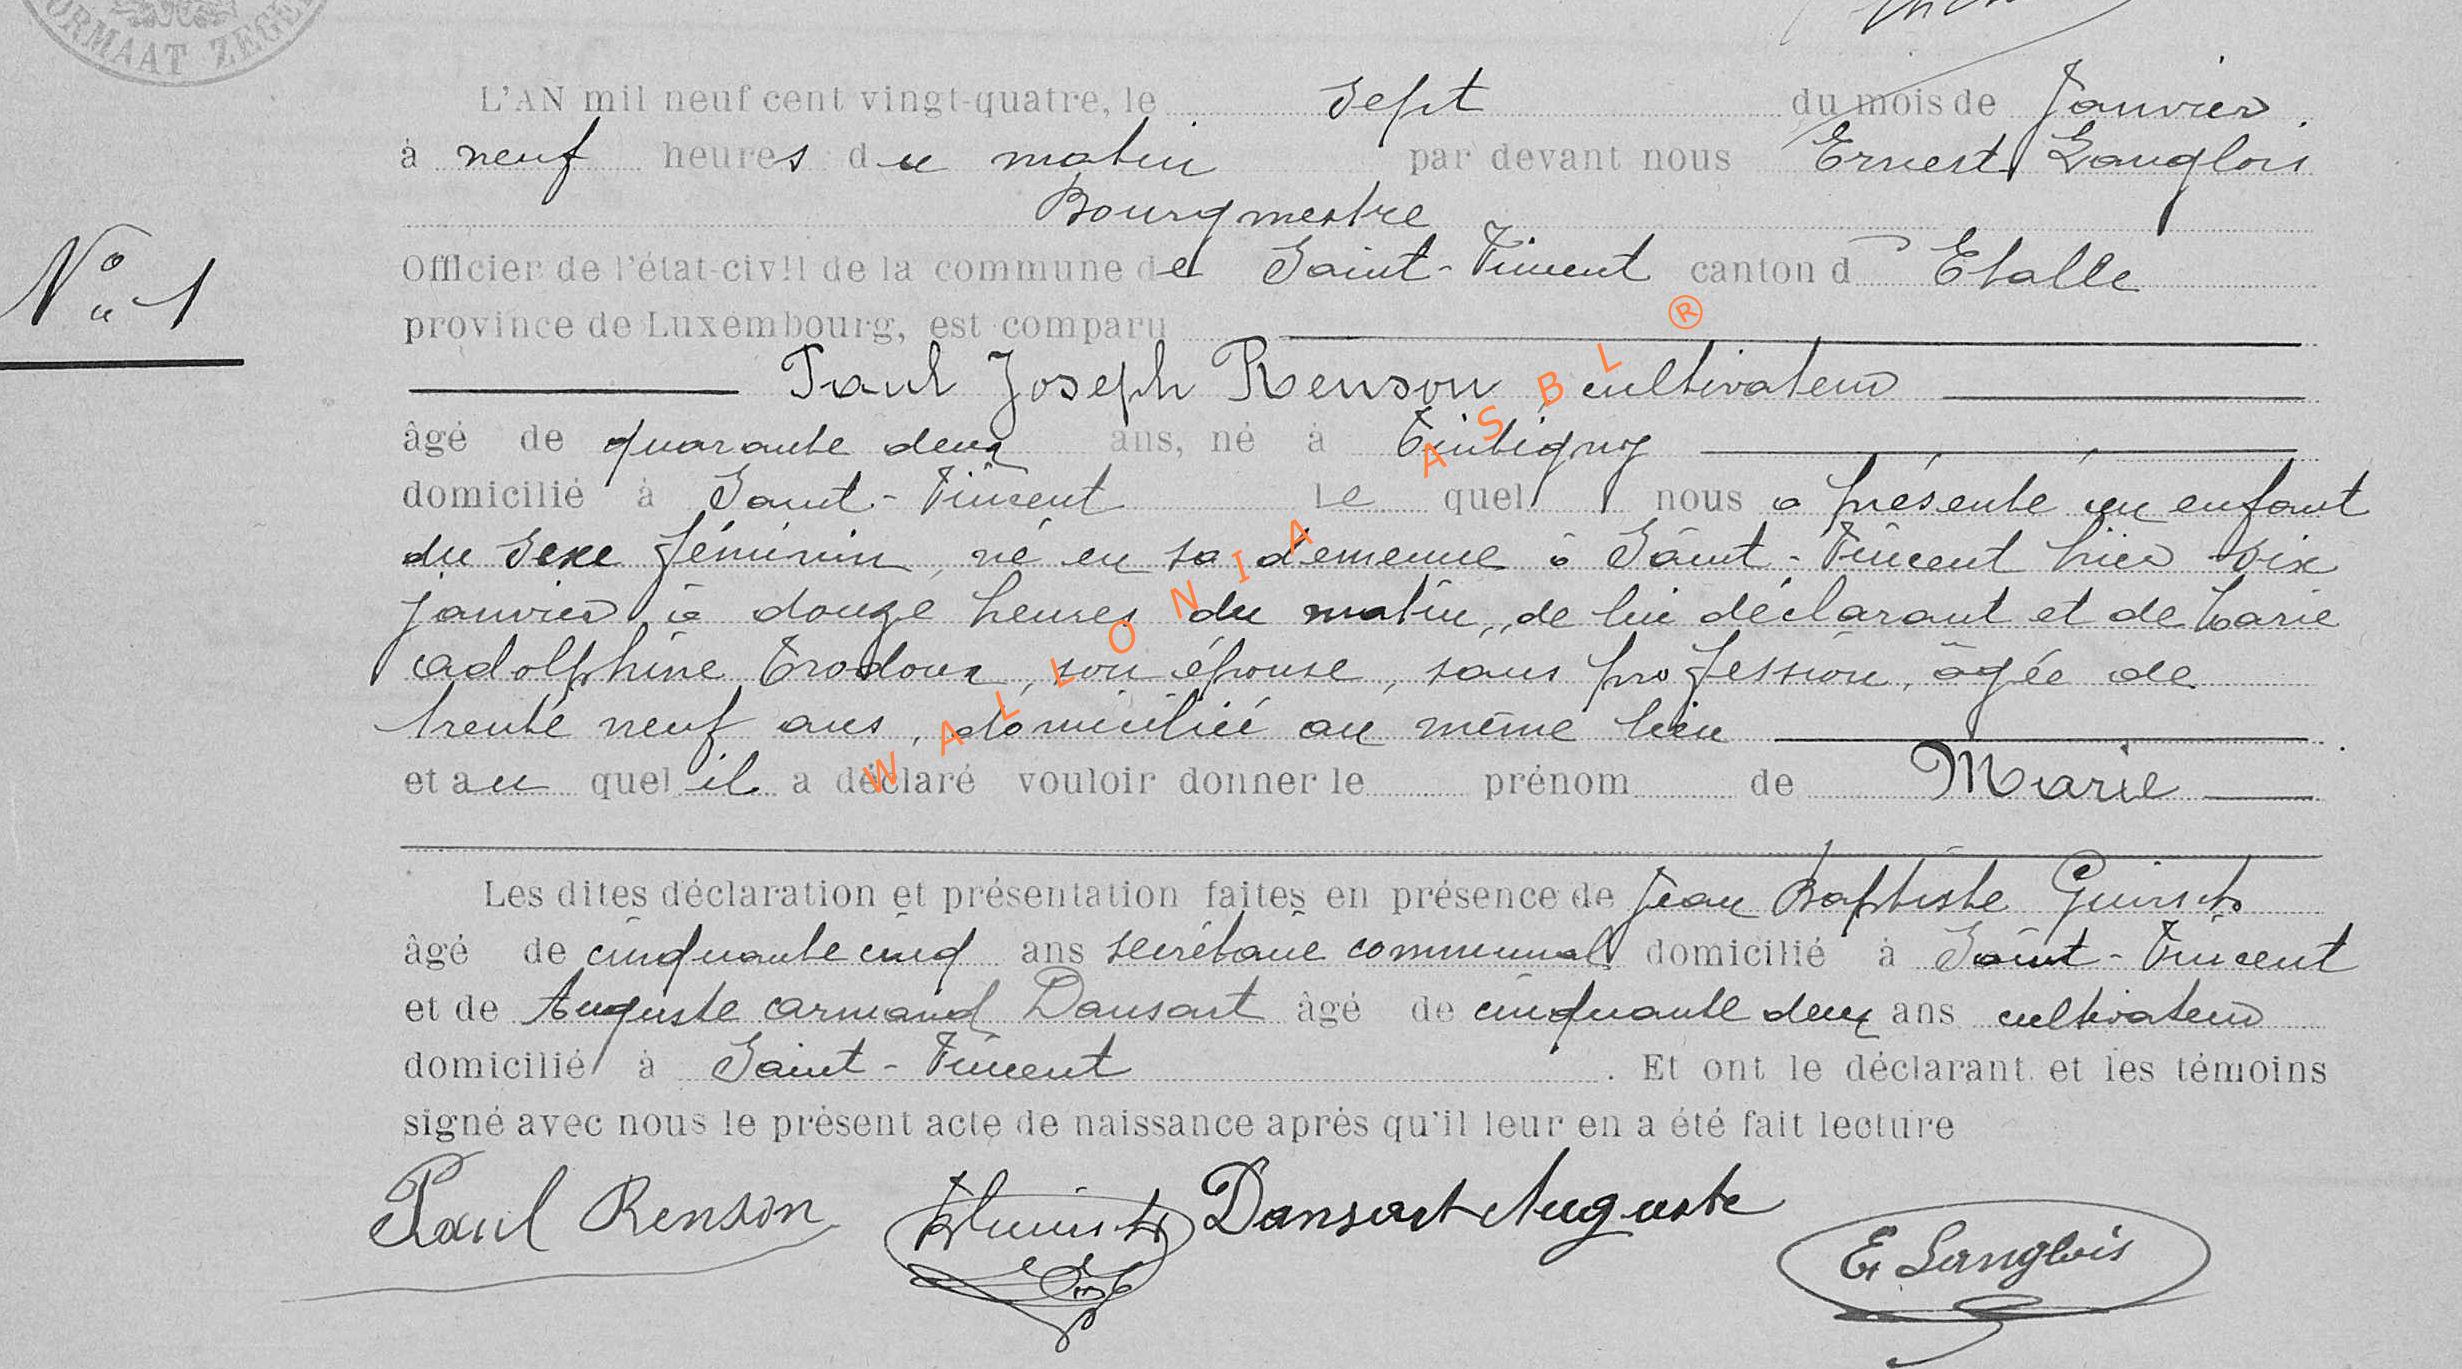 ORMAAT ZEGEL
L'AN mil neuf cent vingt-quatre, le sept du mois de Janvier
à neuf heures du matin par devant nous Ernest Langlois
Bourgmestre
N° 1
Officier de l'état-civil de la commune de Saint-Vincent canton d Etalle
province de Luxembourg, est comparu
Paul Joseph Renson cultivateur
âgé de quarante deux ans, né à Tintigny
domicilié à Saint-Vincent le quel nous a présenté un enfant
du sexe féminin, né en sa demeure à Saint-Vincent hier six
janvier à douze heures du matin, de lui déclarant et de Marie
Adolphine Trodoux, son épouse, sans profession, âgée de
trente neuf ans, domiciliée au même lieu
et au quel il a déclaré vouloir donner le prénom de Marie
Les dites déclaration et présentation faites en présence de Jean Baptiste
âgé de cinquante cinq ans secrétaire communal domicilié à Saint-Vincent
et de Auguste Armand Dansart âgé de cinquante deux ans cultivateur
domicilié à Saint-Vincent. Et ont le déclarant et les témoins
signé avec nous le présent acte de naissance après qu'il leur en a été fait lecture
Paul Renson Dansart Auguste
E Langlois
WALLONIA ASBL ®